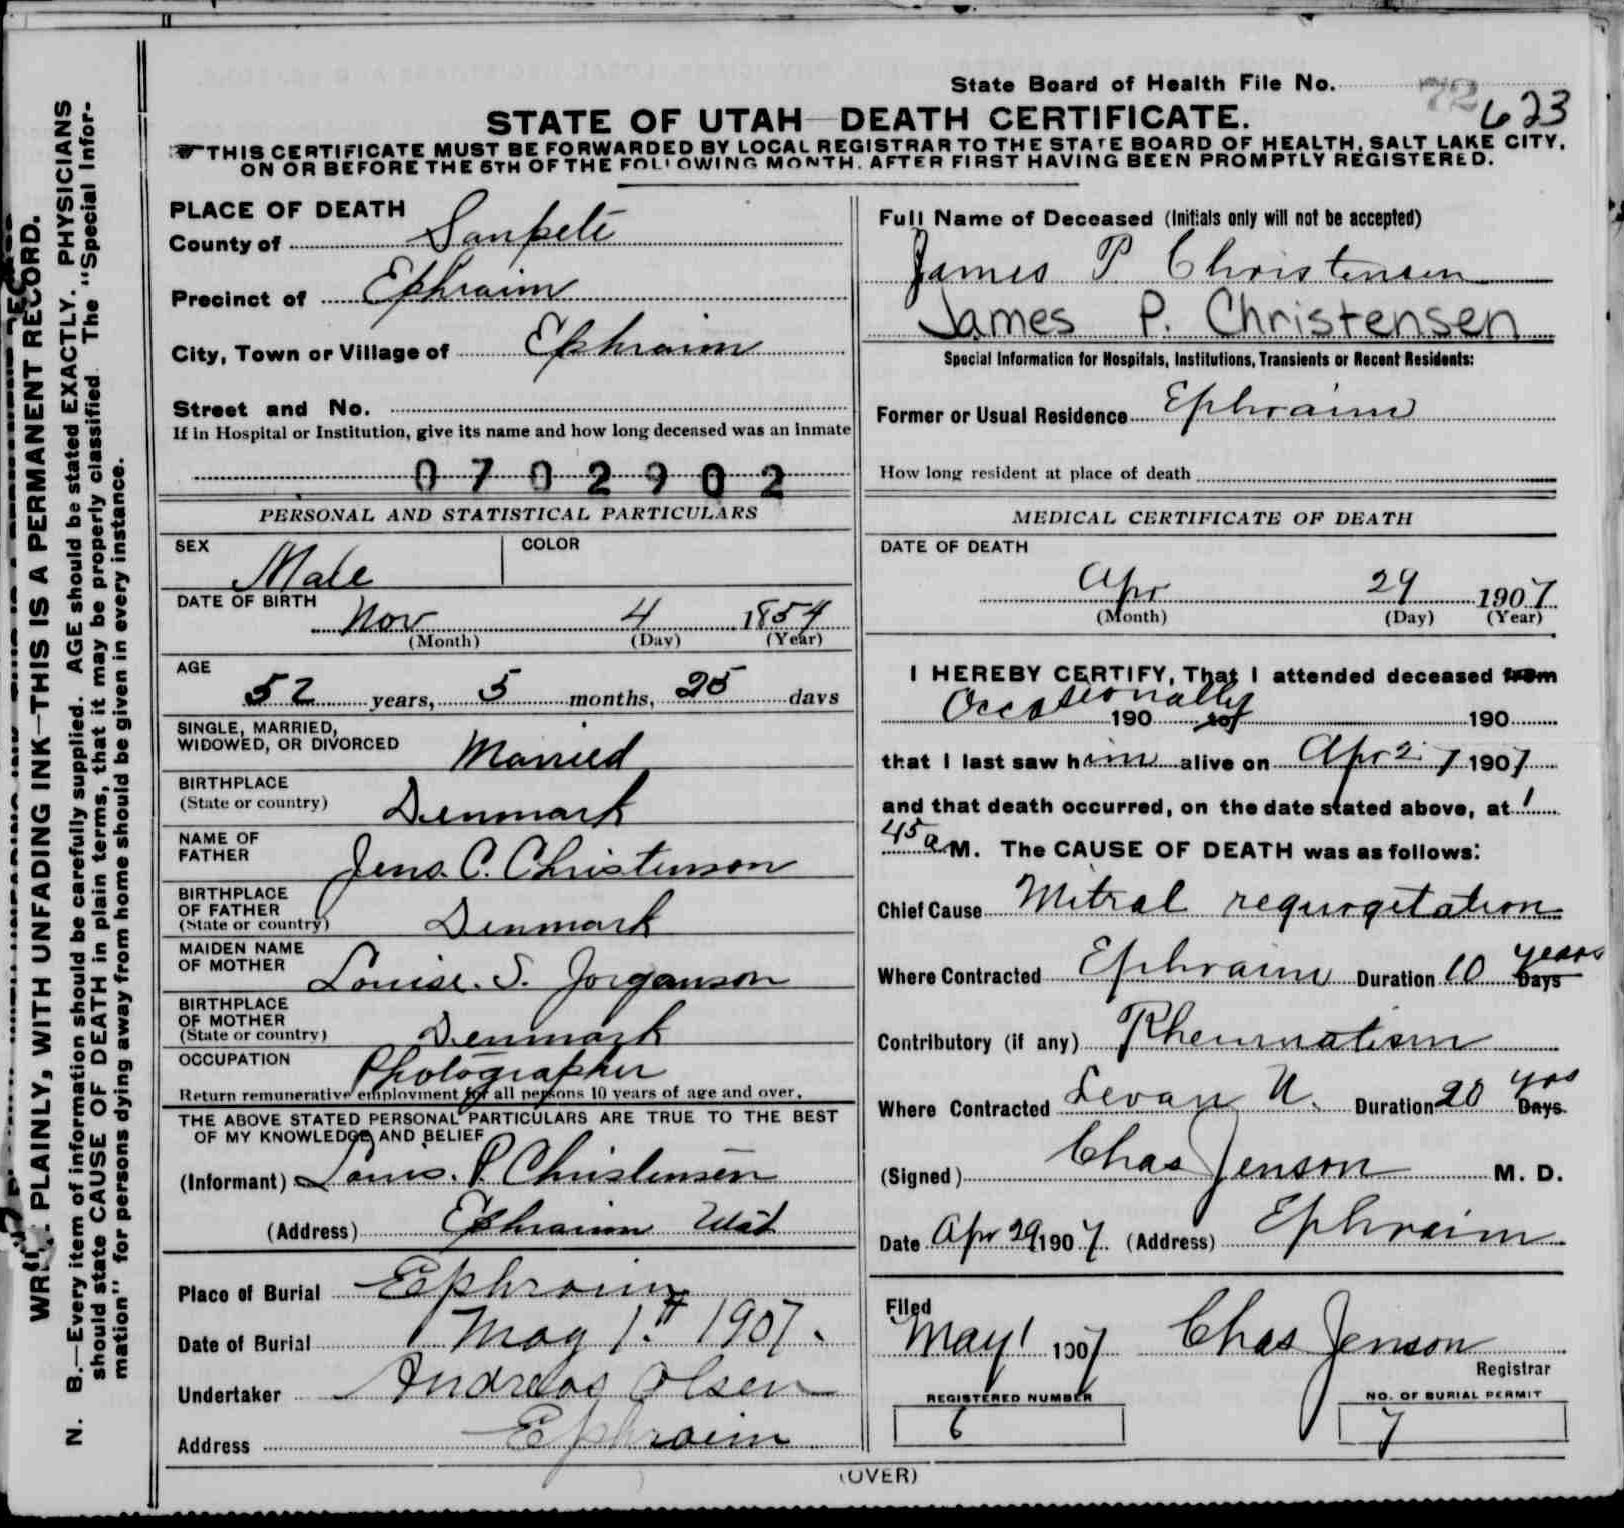 State Board of Health File No. 72 623
STATE OF UTAH—DEATH CERTIFICATE.
THIS CERTIFICATE MUST BE FORWARDED BY LOCAL REGISTRAR TO THE STATE BOARD OF HEALTH, SALT LAKE CITY,
ON OR BEFORE THE 5TH OF THE FOLLOWING MONTH, AFTER FIRST HAVING BEEN PROMPTLY REGISTERED.
PLAINLY, WITH UNFADING INK—THIS IS A PERMANENT RECORD.
N. B.—Every item of information should be carefully supplied. AGE should be stated EXACTLY. PHYSICIANS
should state CAUSE OF DEATH in plain terms, that it may be properly classified. The "Special Infor-
mation" for persons dying away from home should be given in every instance.
PLACE OF DEATH
County of Sanpete
Precinct of Ephraim
City, Town or Village of Ephraim
Street and No.
If in Hospital or Institution, give its name and how long deceased was an inmate
0702902
PERSONAL AND STATISTICAL PARTICULARS
SEX Male COLOR
DATE OF BIRTH
Nov 4 1854
(Month) (Day) (Year)
AGE
52 years, 5 months, 25 days
SINGLE, MARRIED,
WIDOWED, OR DIVORCED Married
BIRTHPLACE
(State or country) Denmark
NAME OF
FATHER Jens. C. Christenson
BIRTHPLACE
OF FATHER
(State or country) Denmark
MAIDEN NAME
OF MOTHER Louise. S. Jorganson
BIRTHPLACE
OF MOTHER
(State or country) Denmark
OCCUPATION Photographer
Return remunerative employment for all persons 10 years of age and over.
THE ABOVE STATED PERSONAL PARTICULARS ARE TRUE TO THE BEST
OF MY KNOWLEDGE AND BELIEF
(Informant) Louis. P. Christensen
(Address) Ephraim Utah
Place of Burial Ephraim
Date of Burial May 1st 1907.
Undertaker Andreas Olsen
Address Ephraim
Full Name of Deceased (Initials only will not be accepted)
James P. Christensen
James P. Christensen
Special Information for Hospitals, Institutions, Transients or Recent Residents:
Former or Usual Residence Ephraim
How long resident at place of death
MEDICAL CERTIFICATE OF DEATH
DATE OF DEATH
Apr 29 1907
(Month) (Day) (Year)
I HEREBY CERTIFY, That I attended deceased from
Occasionally 190 to 190
that I last saw him alive on Apr 27 1907
and that death occurred, on the date stated above, at 1
45 a M. The CAUSE OF DEATH was as follows:
Chief Cause Mitral requrgetation
Where Contracted Ephraim Duration 10 years Days
Contributory (if any) Rheumatism
Where Contracted Levan U. Duration 20 yrs Days.
(Signed) Chas Jenson M. D.
Date Apr 29 1907. (Address) Ephraim
Filed
May 1 1907 Chas Jenson
Registrar
REGISTERED NUMBER NO. OF BURIAL PERMIT
6 7
(OVER)